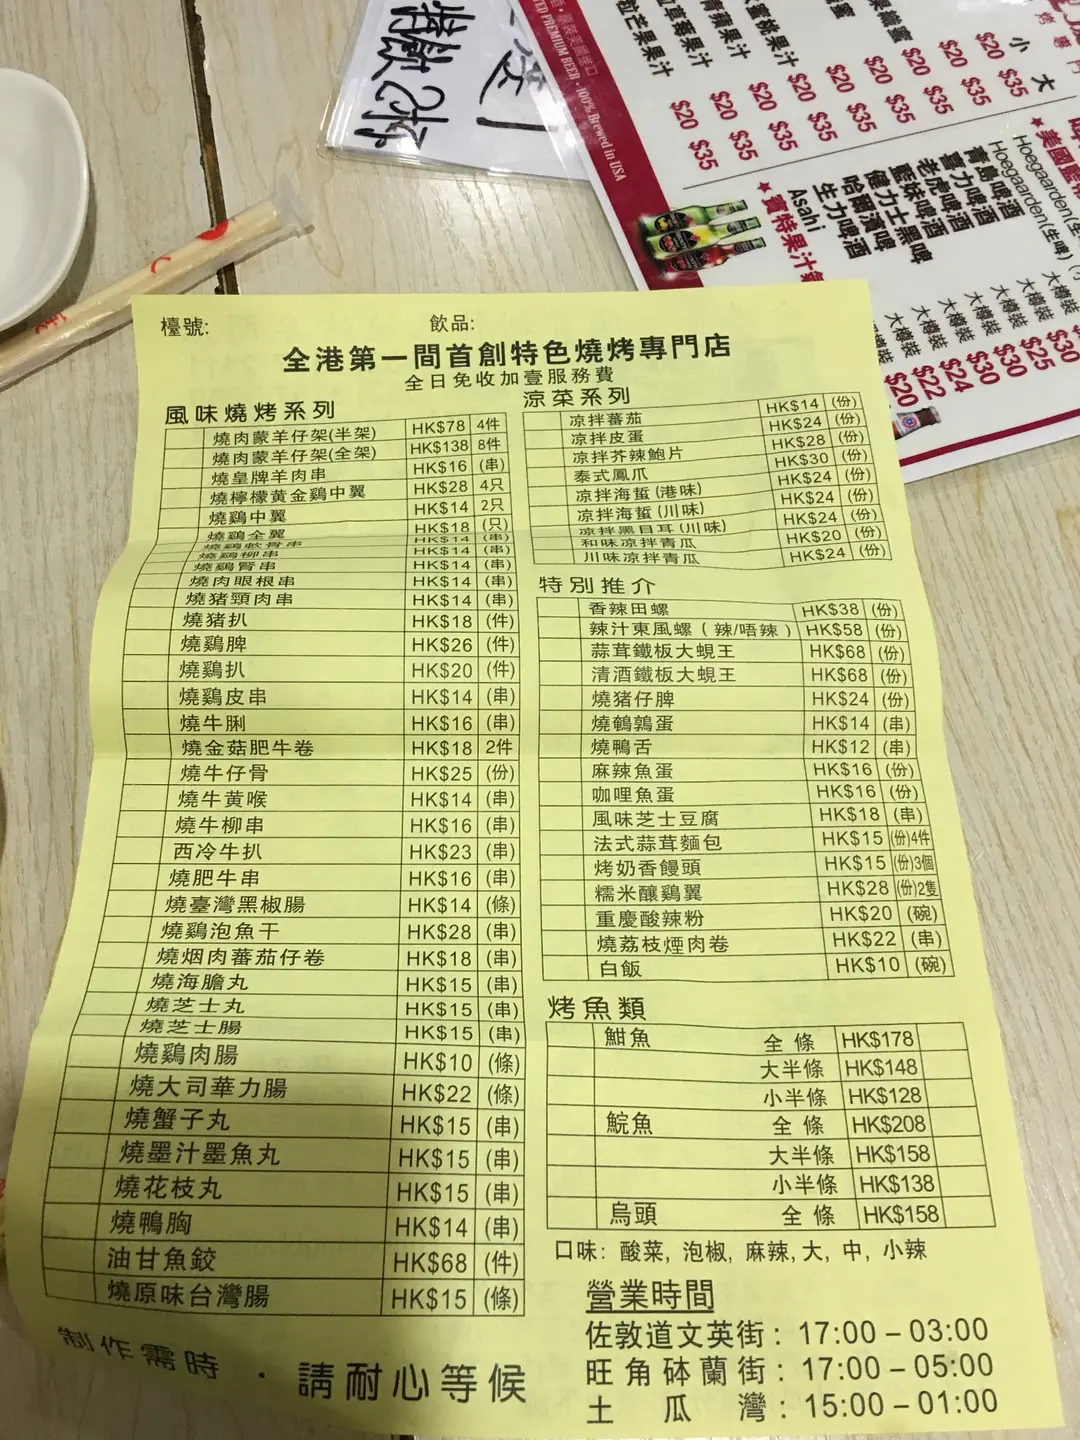 特飲2杯
TED PREMIUM BEER · 100% Brewed in USA
芒果果汁 $20 $35
草莓果汁 $20 $35
青蘋果汁 $20 $35
水蜜桃果汁 $20 $35
小 大
$20 $35
$20 $35
$20 $35
$20 $35
美國
Hoegaarden
Hoegaarden(生啤)
青島啤酒 大樽裝 $30
富力啤酒 大樽裝 $25
老虎啤酒 大樽裝 $30
藍妹啤酒 大樽裝 $30
健力士黑啤 大樽裝 $24
哈爾濱啤 大樽裝 $22
生力啤酒 $20
Asahi
賓特果汁
檯號:
飲品:
全港第一間首創特色燒烤專門店
全日免收加壹服務費
風味燒烤系列
燒肉蒙羊仔架(半架) HK$78 4件
燒肉蒙羊仔架(全架) HK$138 8件
燒皇牌羊肉串 HK$16 (串)
燒檸檬黃金鷄中翼 HK$28 4只
燒鷄中翼 HK$14 2只
燒鷄全翼 HK$18 (只)
燒鷄軟骨串 HK$14 (串)
燒鷄柳串 HK$14 (串)
燒鷄腎串 HK$14 (串)
燒肉眼根串 HK$14 (串)
燒猪頸肉串 HK$14 (串)
燒猪扒 HK$18 (件)
燒鷄脾 HK$26 (件)
燒鷄扒 HK$20 (件)
燒鷄皮串 HK$14 (串)
燒牛脷 HK$16 (串)
燒金菇肥牛卷 HK$18 2件
燒牛仔骨 HK$25 (份)
燒牛黃喉 HK$14 (串)
燒牛柳串 HK$16 (串)
西冷牛扒 HK$23 (串)
燒肥牛串 HK$16 (串)
燒臺灣黑椒腸 HK$14 (條)
燒鷄泡魚干 HK$28 (串)
燒烟肉蕃茄仔卷 HK$18 (串)
燒海膽丸 HK$15 (串)
燒芝士丸 HK$15 (串)
燒芝士腸 HK$15 (串)
燒鷄肉腸 HK$10 (條)
燒大司華力腸 HK$22 (條)
燒蟹子丸 HK$15 (串)
燒墨汁墨魚丸 HK$15 (串)
燒花枝丸 HK$15 (串)
燒鴨胸 HK$14 (串)
油甘魚鮫 HK$68 (件)
燒原味台灣腸 HK$15 (條)
制作需時 · 請耐心等候
涼菜系列
凉拌蕃茄 HK$14 (份)
凉拌皮蛋 HK$24 (份)
凉拌芥辣鮑片 HK$28 (份)
泰式鳳爪 HK$30 (份)
凉拌海蜇(港味) HK$24 (份)
凉拌海蜇(川味) HK$24 (份)
凉拌黑目耳(川味) HK$24 (份)
和味凉拌青瓜 HK$20 (份)
川味凉拌青瓜 HK$24 (份)
特別推介
香辣田螺 HK$38 (份)
辣汁東風螺(辣/唔辣) HK$58 (份)
蒜茸鐵板大蜆王 HK$68 (份)
清酒鐵板大蜆王 HK$68 (份)
燒猪仔脾 HK$24 (份)
燒鵪鶉蛋 HK$14 (串)
燒鴨舌 HK$12 (串)
麻辣魚蛋 HK$16 (份)
咖哩魚蛋 HK$16 (份)
風味芝士豆腐 HK$18 (串)
法式蒜茸麵包 HK$15 (份)4件
烤奶香饅頭 HK$15 (份)3個
糯米釀鷄翼 HK$28 (份)2隻
重慶酸辣粉 HK$20 (碗)
燒荔枝煙肉卷 HK$22 (串)
白飯 HK$10 (碗)
烤魚類
鉗魚 全條 HK$178
大半條 HK$148
小半條 HK$128
鯇魚 全條 HK$208
大半條 HK$158
小半條 HK$138
烏頭 全條 HK$158
口味: 酸菜, 泡椒, 麻辣,大, 中, 小辣
營業時間
佐敦道文英街: 17:00 – 03:00
旺角砵蘭街: 17:00 – 05:00
土瓜灣: 15:00 – 01:00